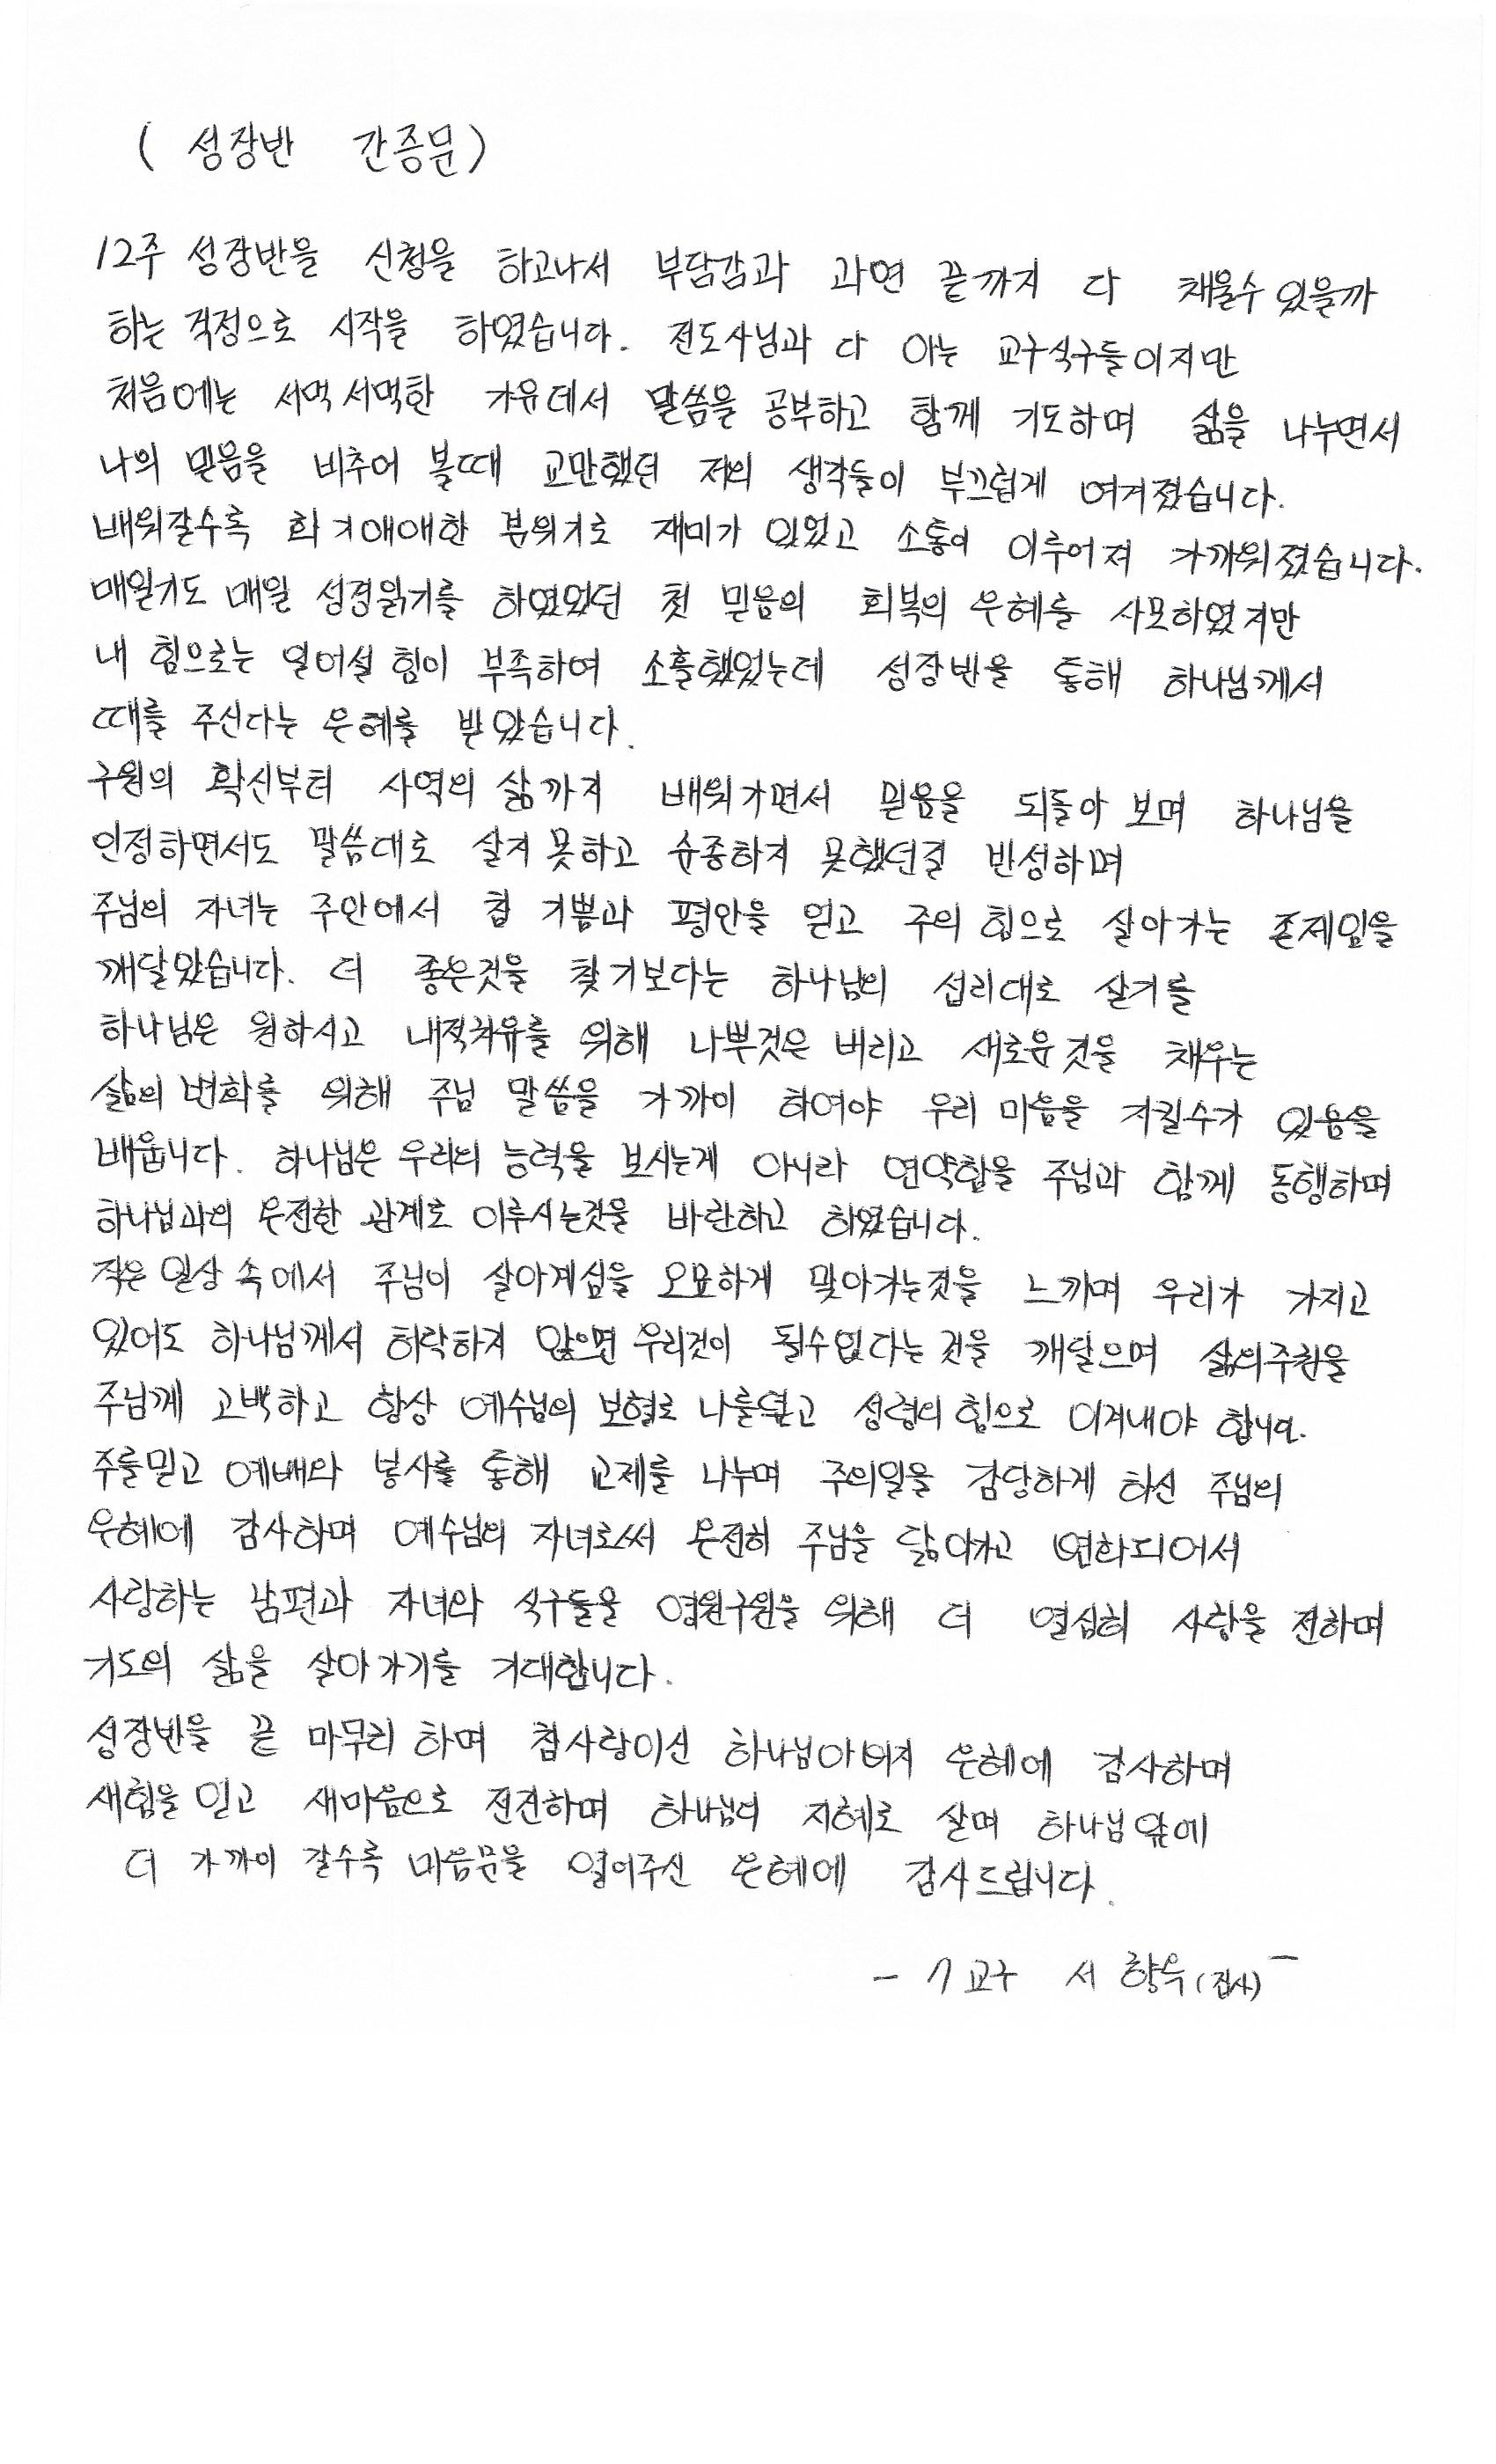 ( 성장반 간증문)
12주 성장반을 신청을 하고나서 부담감과 과연 끝까지 다 채울수 있을까
하는 걱정으로 시작을 하였습니다. 전도사님과 다 아는 교구식구들이지만
처음에는 서먹서먹한 가운데서 말씀을 공부하고 함께 기도하며 삶을 나누면서
나의 믿음을 비추어 볼때 교만했던 저의 생각들이 부끄럽게 여겨졌습니다.
배워갈수록 화기애애한 분위기로 재미가 있었고 소통이 이루어져 가까워졌습니다.
매일기도 매일 성경읽기를 하였었던 첫 믿음의 회복의 은혜를 사모하였지만
내 힘으로는 일어설 힘이 부족하여 소홀했었는데 성장반을 통해 하나님께서
때를 주신다는 은혜를 받았습니다.
구원의 확신부터 사역의 삶까지 배워가면서 믿음을 되돌아 보며 하나님을
인정하면서도 말씀대로 살지 못하고 순종하지 못했던걸 반성하며
주님의 자녀는 주안에서 참 기쁨과 평안을 얻고 주의 힘으로 살아가는 존재임을
깨달았습니다. 더 좋은것을 찾기보다는 하나님의 섭리대로 살기를
하나님은 원하시고 내적치유를 위해 나쁜것은 버리고 새로운것을 채우는
삶의 변화를 위해 주님 말씀을 가까이 하여야 우리 마음을 지킬수가 있음을
배웁니다. 하나님은 우리의 능력을 보시는게 아니라 연약함을 주님과 함께 동행하며
하나님과의 온전한 관계로 이루시는것을 바란하고 하였습니다.
작은 일상 속에서 주님이 살아계심을 오묘하게 맞아가는것을 느끼며 우리가 가지고
있어도 하나님께서 허락하지 않으면 우리것이 될수없다는 것을 깨달으며 삶의주권을
주님께 고백하고 항상 예수님의 보혈로 나를덮고 성령의 힘으로 이겨내야 합니다.
주를믿고 예배와 봉사를 통해 교제를 나누며 주의일을 감당하게 하신 주님의
은혜에 감사하며 예수님의 자녀로써 온전히 주님을 닮아가고 변화되어서
사랑하는 남편과 자녀와 식구들을 영원구원을 위해 더 열심히 사랑을 전하며
기도의 삶을 살아가기를 기대합니다.
성장반을 끝 마무리 하며 참사랑이신 하나님아버지 은혜에 감사하며
새힘을 얻고 새마음으로 전진하며 하나님의 지혜로 살며 하나님앞에
더 가까이 갈수록 마음문을 열어주신 은혜에 감사드립니다.
- 7교구 서향옥(집사) -